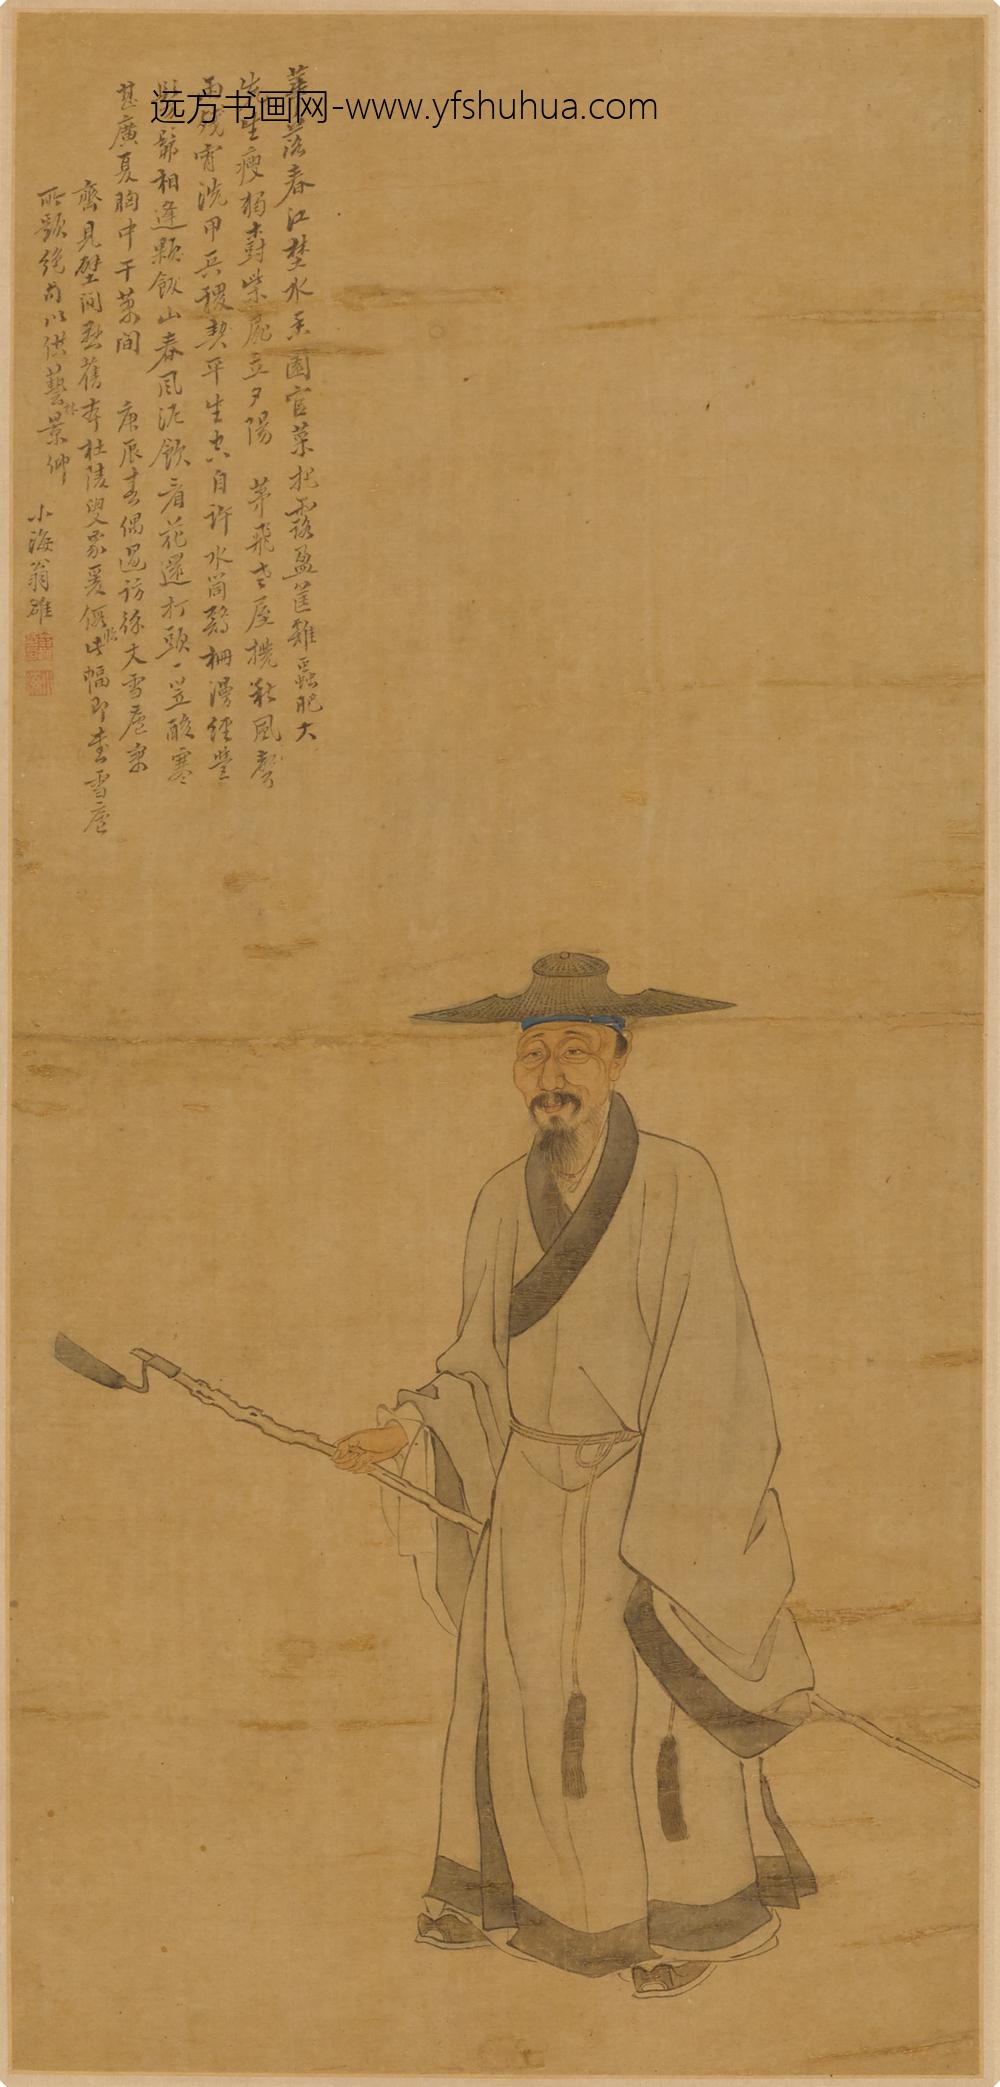 远方书画网-www.yfshuhua.com
落春江楚水香園官菜把露盈筐雞蟲肥大
瘦獨對柴扉立夕陽 茅飛老屋攪秋風
宵洗甲兵稷契平生空自許水筒雞柵漫經營
相逢飯山春風泥飲看花還打頭一笠酸寒
甚廣夏胸中千萬間 庚辰春偶過訪 丈雪廬
齋見壁間舊本杜陵叟象爰 此幅即書雪廬
所題絕句以供藝林景仰 小海翁雄